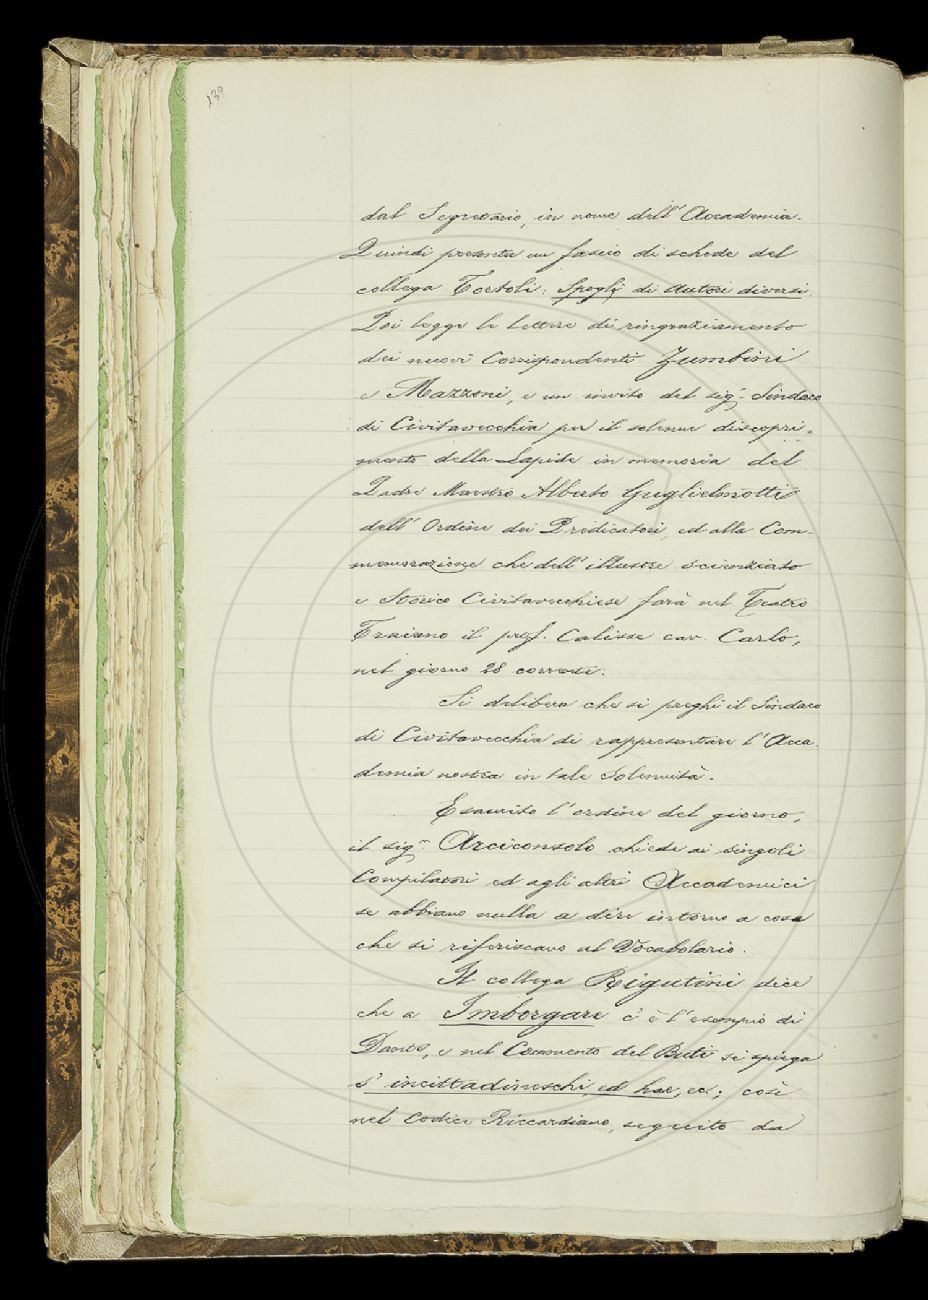 130
dal Segretario, in nome dell' Accademia.
Quindi presenta un fascio di schede del
collega Tortoli: Spoglj di autori diversi.
Poi legge le lettere di ringraziamento
dei nuovi Corrispondenti Zumbini
e Mazzoni, e un invito del sig.r Sindaco
di Civitavecchia per il solenne discopri-
mento della Lapide in memoria del
Padre Maestro Alberto Guglielmotti
dell' Ordine dei Predicatori, ed alla Com-
memorazione che dell' illustre scienziato
e Storico Civitavecchiese farà nel Teatro
Traiano il prof. Calisse cav. Carlo,
nel giorno 28 corrente.
Si delibera che si preghi il Sindaco
di Civitavecchia di rappresentare l' Acca-
demia nostra in tale Solennità.
Esaurito l' ordine del giorno,
il sig.r Arciconsolo chiede ai singoli
Compilatori ed agli altri Accademici
se abbiano nulla a dire intorno a cose
che si riferiscano al Vocabolario.
Il collega Rigutini dice
che a Imborgare c' è l' esempio di
Dante, e nel Commento del Buti si spiega
s' incittadineschi, ed hae, ec; così
nel Codice Riccardiano, seguito da